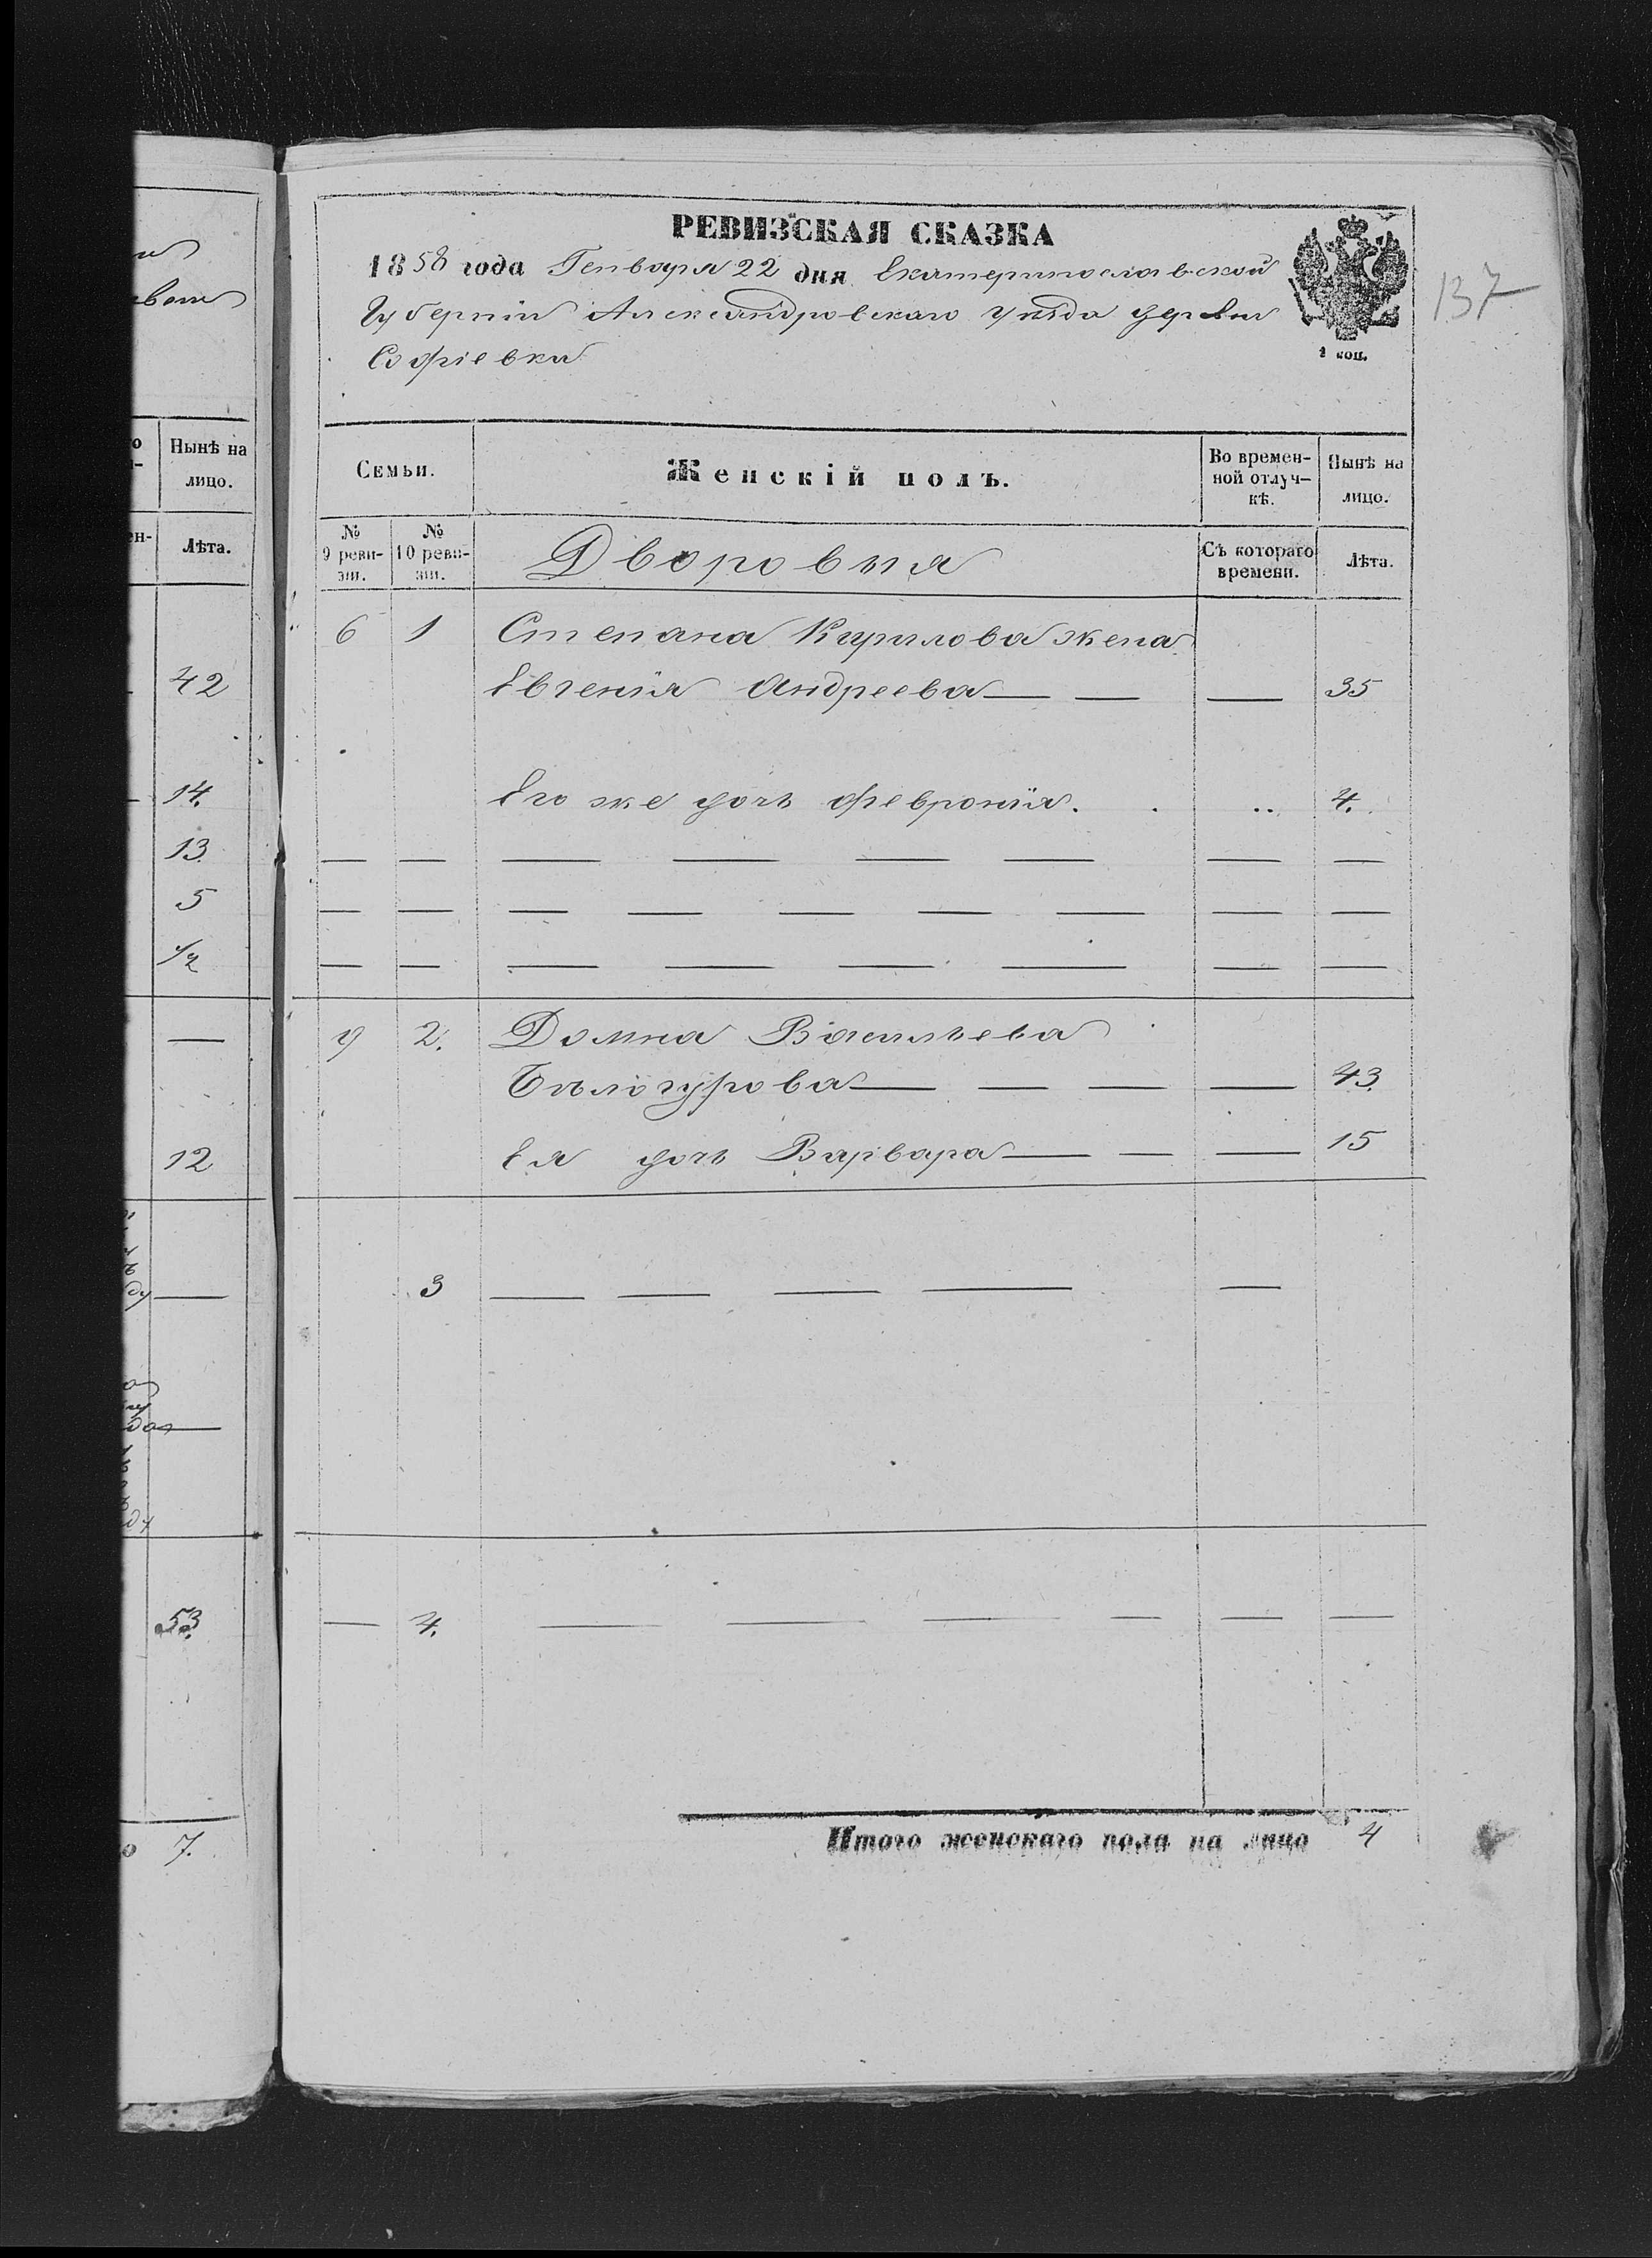 РЕВИЗСКАЯ СКАЗКА
1858 года Генваря 22 дня Екатеринославской
Губерніи Александровскаго уѣзда деревни
Софіевки
1 коп.
137
Нынѣ на
лицо.
Лѣта.
42
14.
13.
5
1/2
—
12
53.
7.
Семьи.
Женскій полъ.
Во времен-
ной отлуч-
кѣ.
Нынѣ на
лицо.
№
9 реви-
зіи.
№
10 реви-
зіи.
Дворовыя
Съ котораго
времени.
Лѣта.
6 1 Степана Кирилова жена
Евгенія Андреева — — — 35
Его же дочь Февронія. . .. 4.
— — — — — — — —
— — — — — — — — —
— — — — — — — —
9 2. Домна Васильева
Бѣлогурова — — — — 43.
Ея дочь Варвара — — — 15
3 — — — — —
— 4. — — — — — —
Итого женскаго пола на лицо 4